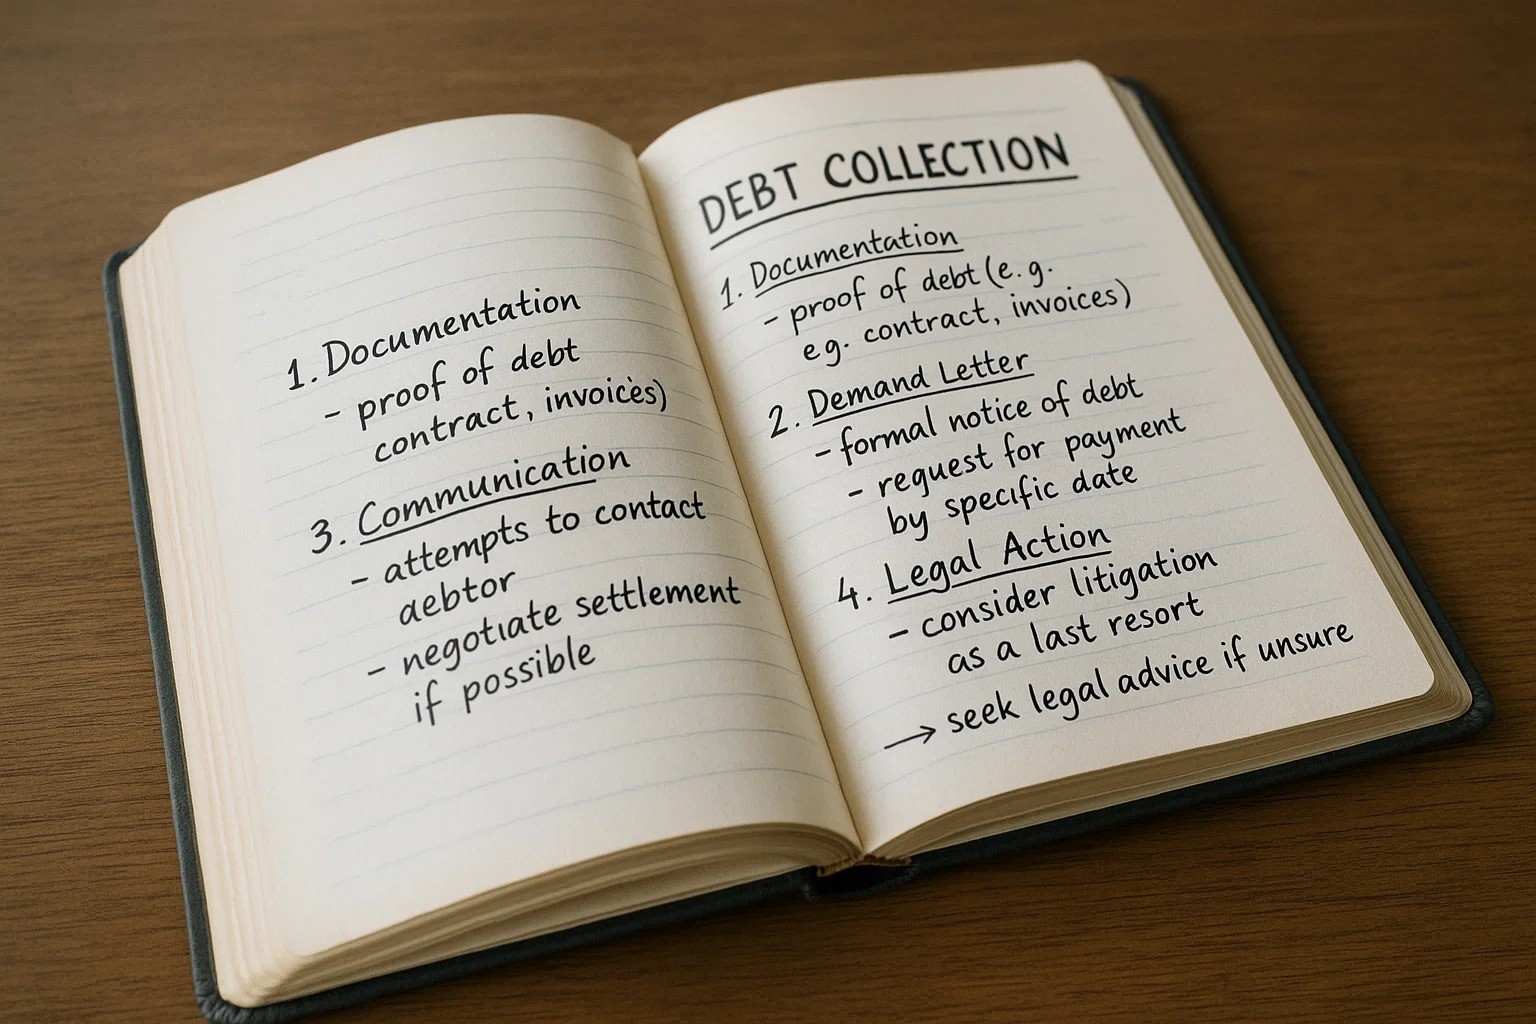 1. Documentation
- proof of debt
contract, invoices)
3. Communication
- attempts to contact
aebtor
- negotiate settlement
if possible
DEBT COLLECTION
1. Documentation
- proof of debt (e. g.
e.g. contract, invoices)
2. Demand Letter
- formal notice of debt
- request for payment
by specific date
4. Legal Action
- consider litigation
as a last resort
→ seek legal advice if unsure